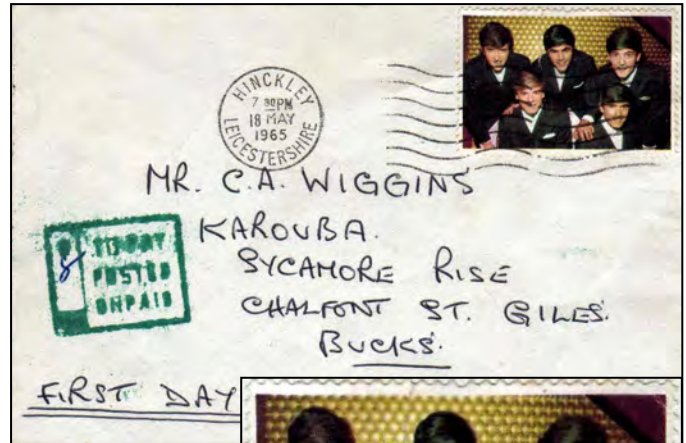 HINCKLEY
7 30PM
18 MAY
1965
LEICESTERSHIRE
MR. C.A. WIGGINS
KAROUBA.
SYCAMORE RISE
CHALFONT ST. GILES.
BUCKS.
8
TO PAY
POSTED
UNPAID
FIRST DAY